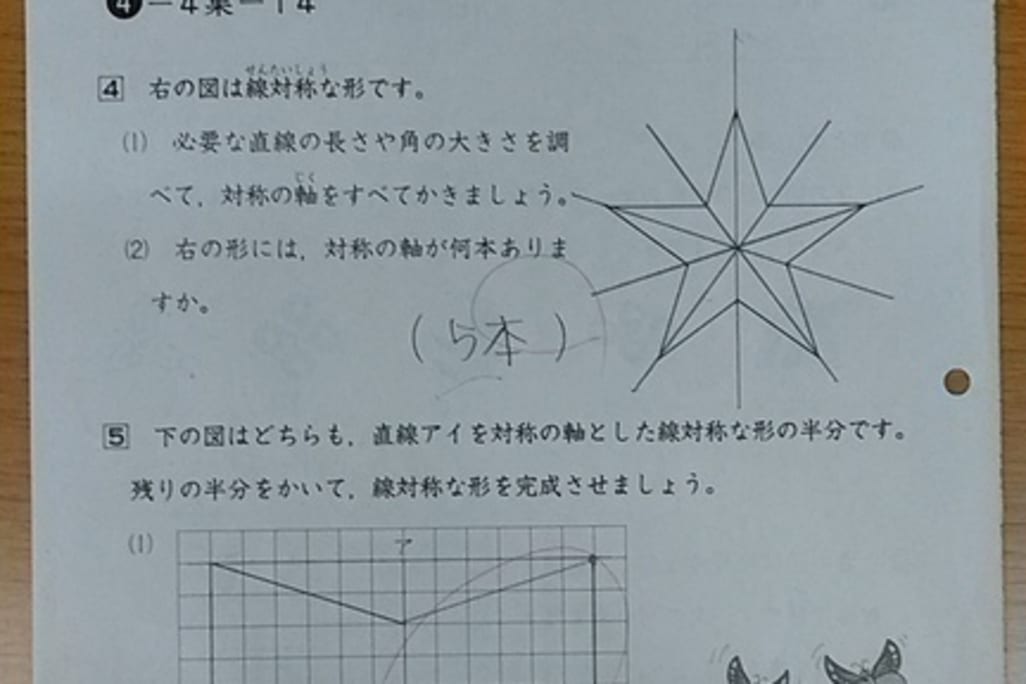 4 右の図は線対称な形です。
せんたいしょう
(1) 必要な直線の長さや角の大きさを調
べて，対称の軸をすべてかきましょう。
じく
(2) 右の形には，対称の軸が何本ありま
すか。
(5本)
5 下の図はどちらも，直線アイを対称の軸とした線対称な形の半分です。
残りの半分をかいて，線対称な形を完成させましょう。
(1)
ア